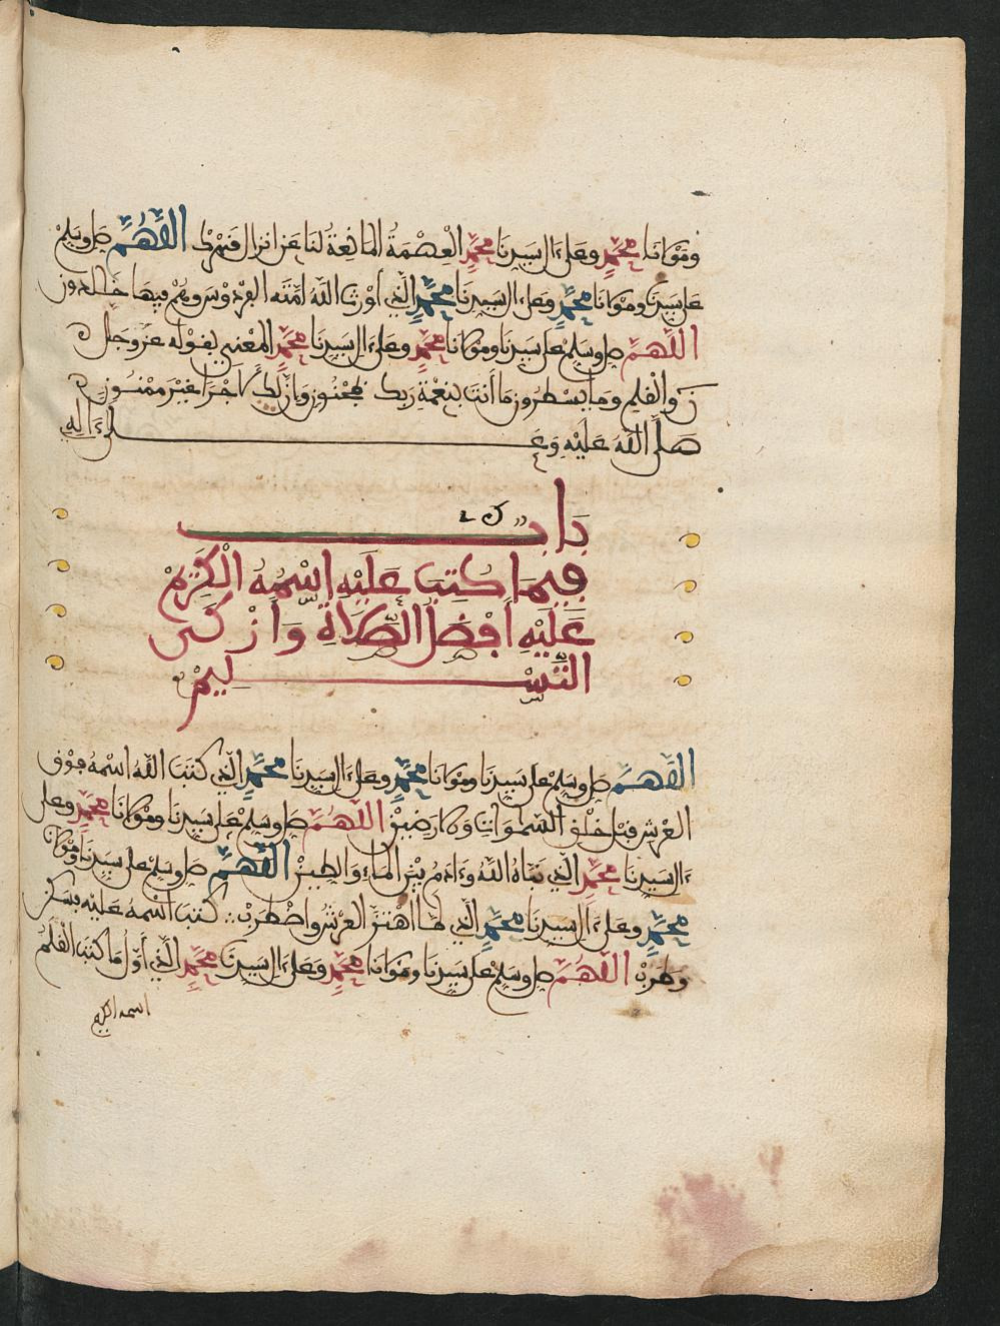 ومولانا محمد وعلى ءال سيدنا محمد العصمة المانعة لنا عز انزال اللهم صل وسلم
على سيدنا ومولانا محمد وعلى ءال سيدنا محمد الذي اورث الله امته الفردوس وهم فيها خالدون
اللهم صل وسلم على سيدنا ومولانا محمد وعلى ءال سيدنا محمد المعني بقوله عز وجل
ن والقلم وما يسطرون ما أنت بنعمة ربك بمجنون وان لك لاجرا غير ممنون
صلى الله عليه وعلى ءاله
باب
فيما كتب عليه اسمه الكريم
عليه افضل الصلاة وازكى
التسليم
اللهم صل وسلم على سيدنا ومولانا محمد وعلى ءال سيدنا محمد الذي كتب الله اسمه فوق
العرش قبل خلق السموات والارضين اللهم صل وسلم على سيدنا ومولانا محمد وعلى
ءال سيدنا محمد الذي نباه الله وءادم بين الماء والطين اللهم صل وسلم على سيدنا ومولانا
محمد وعلى ءال سيدنا محمد الذي لما اهتز العرش واضطرب كتب اسمه عليه فسكن
وطرب اللهم صل وسلم على سيدنا ومولانا محمد وعلى ءال سيدنا محمد الذي أول ما كتب القلم
اسمه الكريم